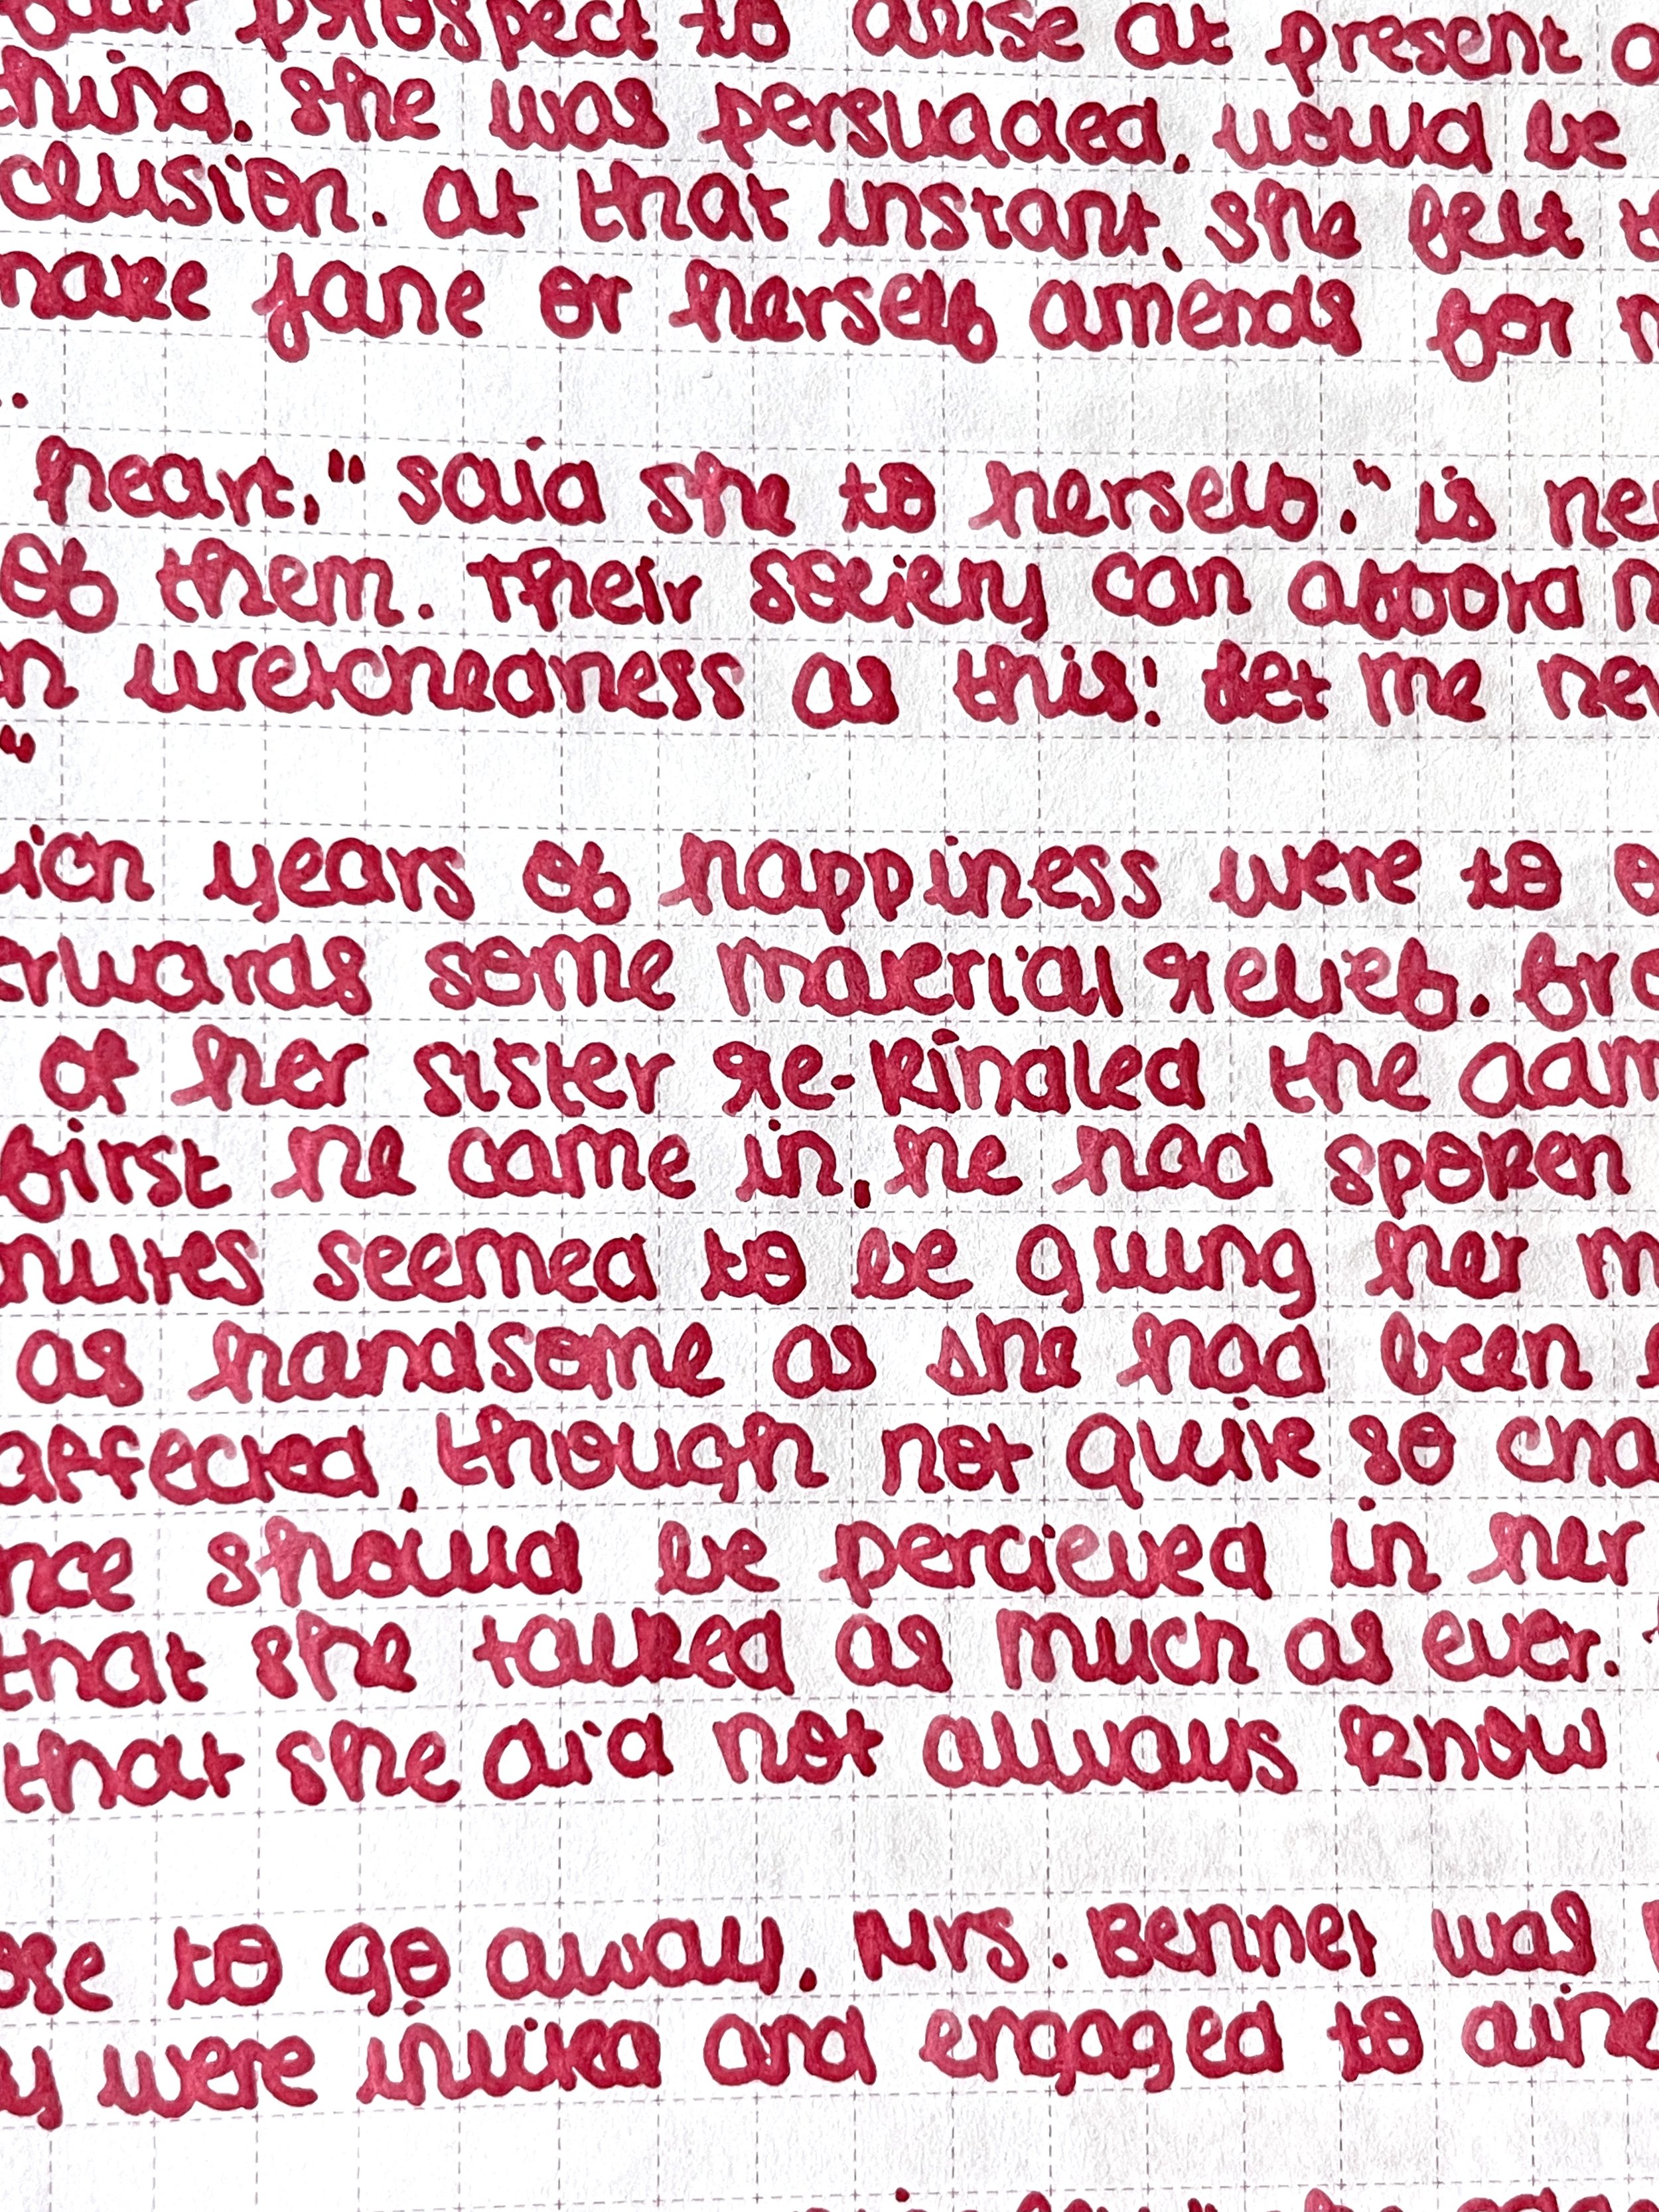 fair prospect to arise at present o
thing, she was persuaded, would be
clusion. At that instant, she felt t
make Jane or herself amends for m
..
heart," said she to herself, "is nev
of them. Their society can afford n
h wretchedness as this! Let me nev
"
hich years of happiness were to o
rwards some material relief, fro
of her sister re-kindled the adm
first he came in, he had spoken
nutes seemed to be giving her m
as handsome as she had been l
affected, though not quite so cha
nce should be percieved in her
that she talked as much as ever.
that she did not always know
ose to go away, Mrs. Bennet was
y were invited and engaged to dine